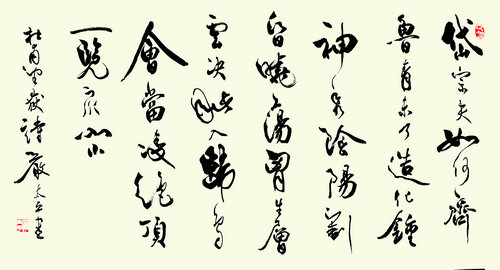 岱宗夫如何齊
魯青未了造化鍾
神秀陰陽割
昏曉蕩胸生層
雲決眥入歸鳥
會當凌絕頂
一覽眾山小
杜甫望嶽詩嚴文書